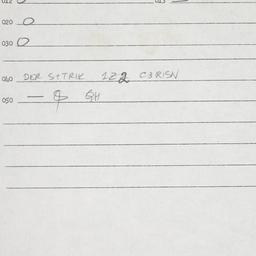 020 O
030 O
040 DER S+TRIK 122 C3RISN
050 — 8 GH